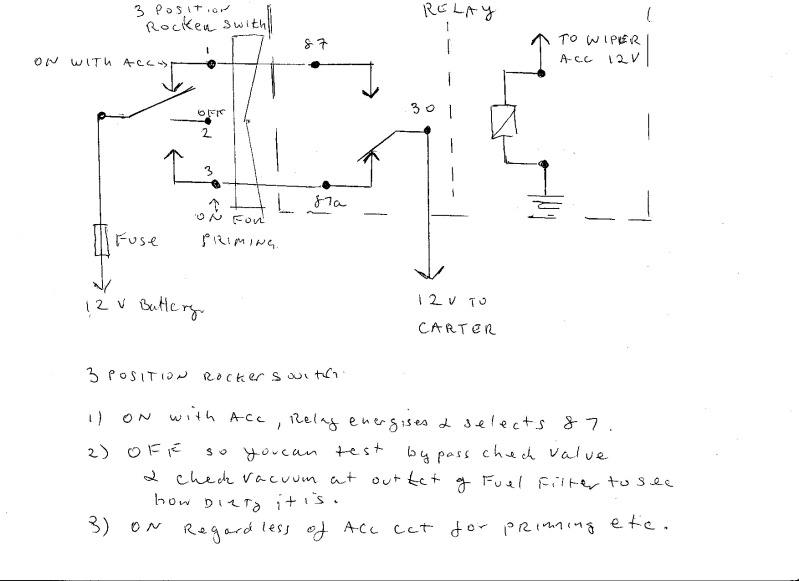 3 POSITION
Rocker Swith
RELAY
ON WITH ACC
1
87
TO WIPER
ACC 12V
OFF
2
30
3
87a
ON FOR
PRIMING
Fuse
12 V Battery
12V TO
CARTER
3 POSITION Rocker Switch
1) ON with Acc, Relay energises & selects 87.
2) OFF so you can test bypass check value
& check vacuum at outlet of Fuel Filter to see
how DIRTY it is.
3) ON Regardless of Acc cct for PRIMING etc.